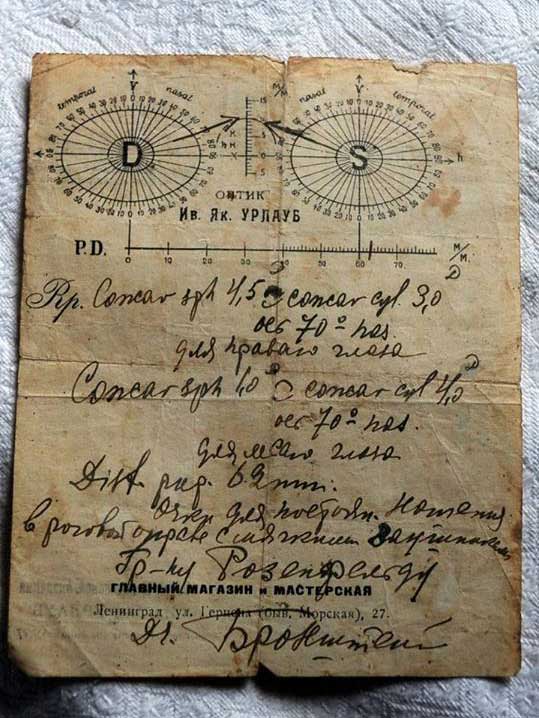 temporal nasal nasal temporal
D S
ОПТИК
Ив. Як. УРЛАУБ
P.D.
0 10 20 30 40 50 60 70 M/M.
Rp. Concav sph 4,5 D concav cyl. 3,0 D
ось 70° nas.
для праваго глаза
Concav sph 1,0 D concav cyl 4,0 D
ось 70° nas.
для леваго глаза
Dist. pup. 62 mm.
очки для постоян. ношения
в роговой оправе с мягкими заушниками
Гр-ну Розенфельду
ГЛАВНЫЙ МАГАЗИН и МАСТЕРСКАЯ
Ленинград ул. Герцена (быв. Морская), 27.
Dr. Бронштейн